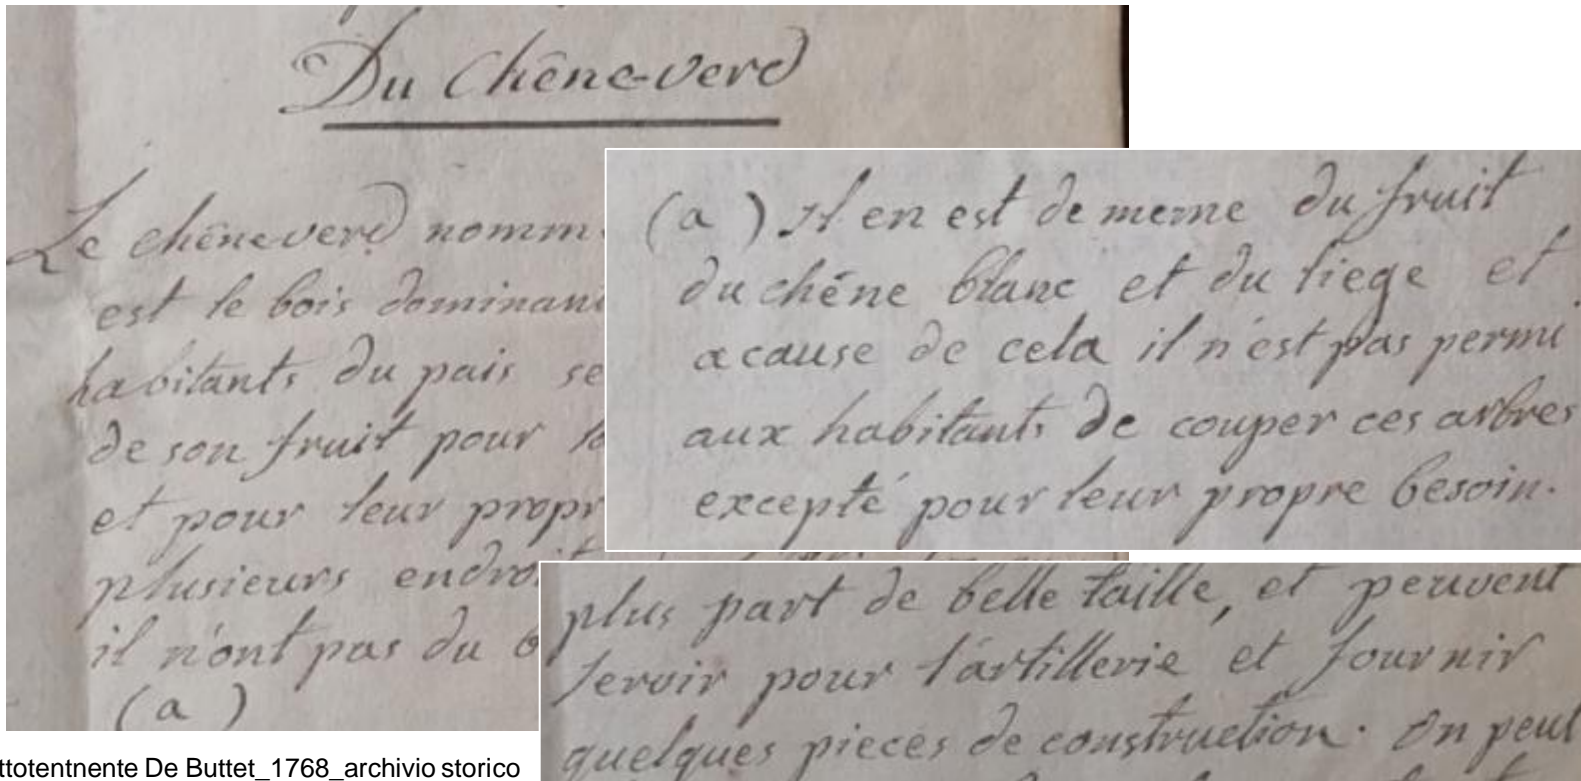 Du Chêne-verd
Le chêneverd nomm
est le bois dominant
habitants du pais se
de son fruit pour
et pour leur propr
plusieurs endroit
il n'ont pas du
(a)
(a) Il en est de meme du fruit
du chêne blanc et du liege et
acause de cela il n'est pas permi
aux habitants de couper ces arbres
excepté pour leur propre besoin.
plus part de belle taille, et peuvent
servir pour l'artillerie et fournir
quelques pieces de construction. On peut
ttotentnente De Buttet_1768_archivio storico